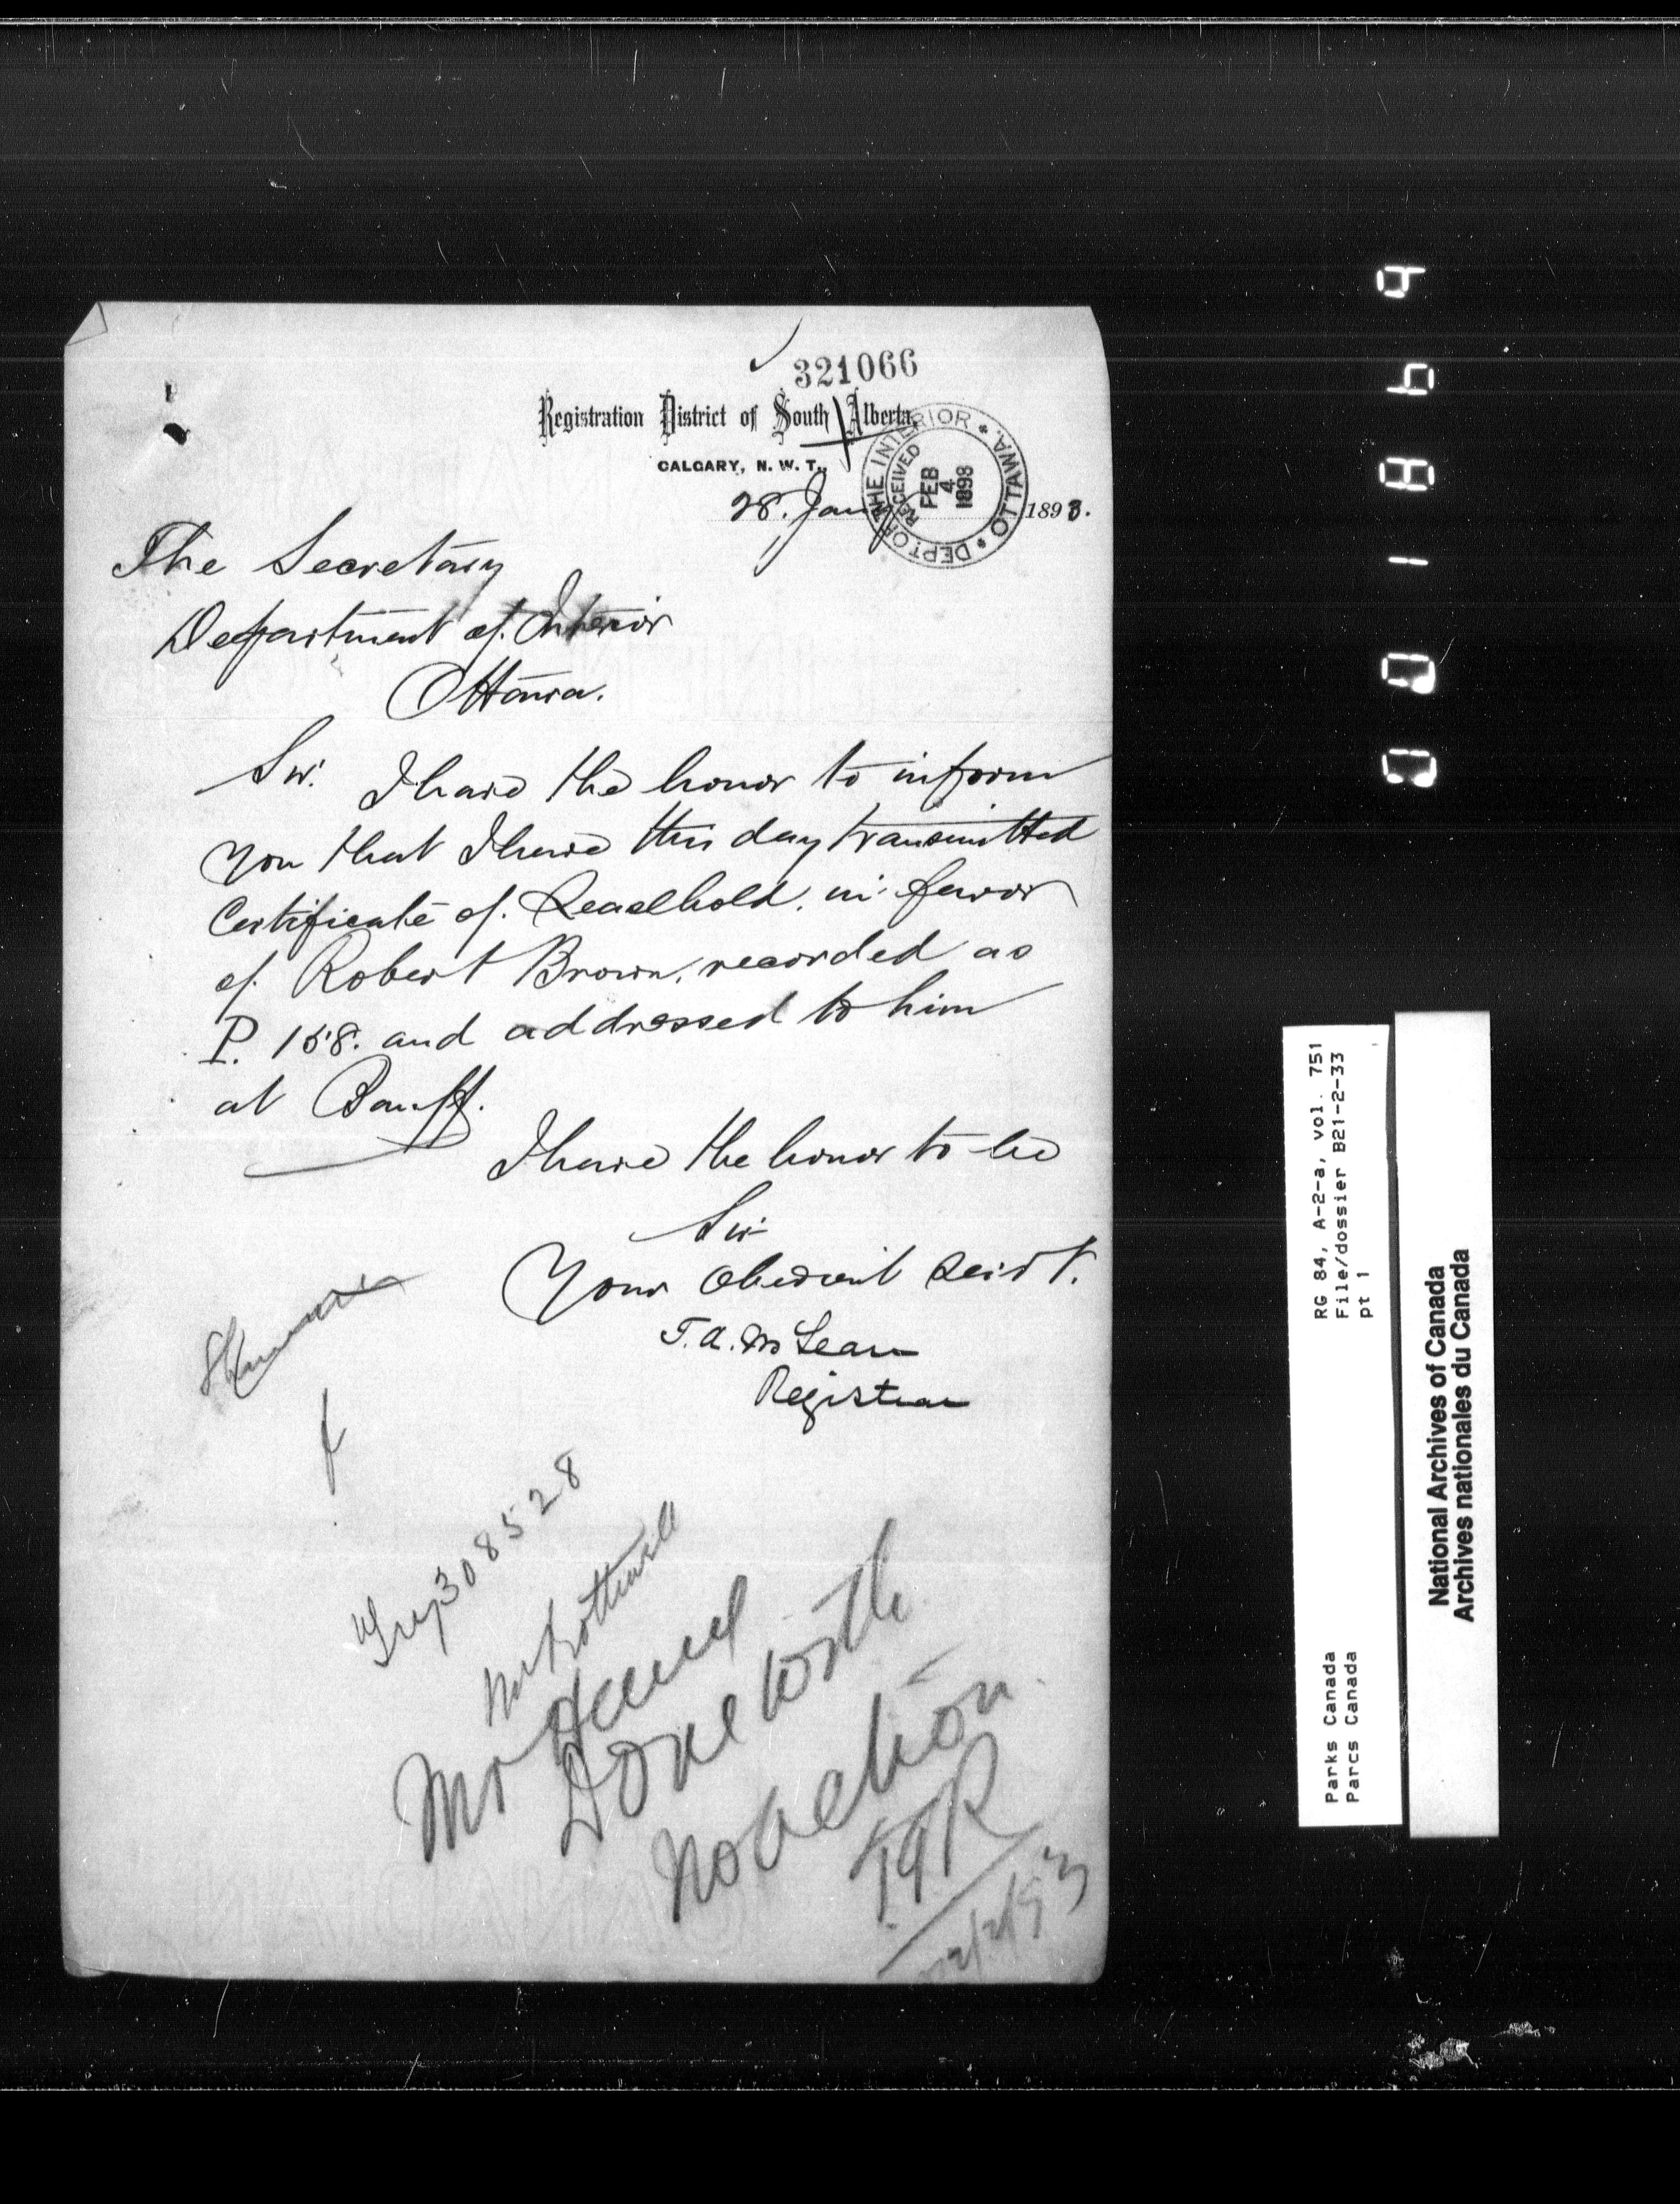 321066
Registration District of South Alberta,
CALGARY, N. W. T.,
28. Jany 1893.
DEPT OF THE INTERIOR * OTTAWA. *
RECEIVED
FEB
4
1893
The Secretary
Department of Interior
Ottawa.
Sir. I have the honor to inform
you that I have this day transmitted
Certificate of Leasehold. in favor
of Robert Brown, recorded as
P. 158. and addressed to him
at Banff.
I have the honor to be
Sir
Your obedient Servt.
T. A. McLean
Registrar
308528
Mr
Done with
No Action.
2/2/93
0018b9
RG 84, A-2-a, vol. 751
File/dossier B21-2-33
pt 1
Parks Canada
Parcs Canada
National Archives of Canada
Archives nationales du Canada